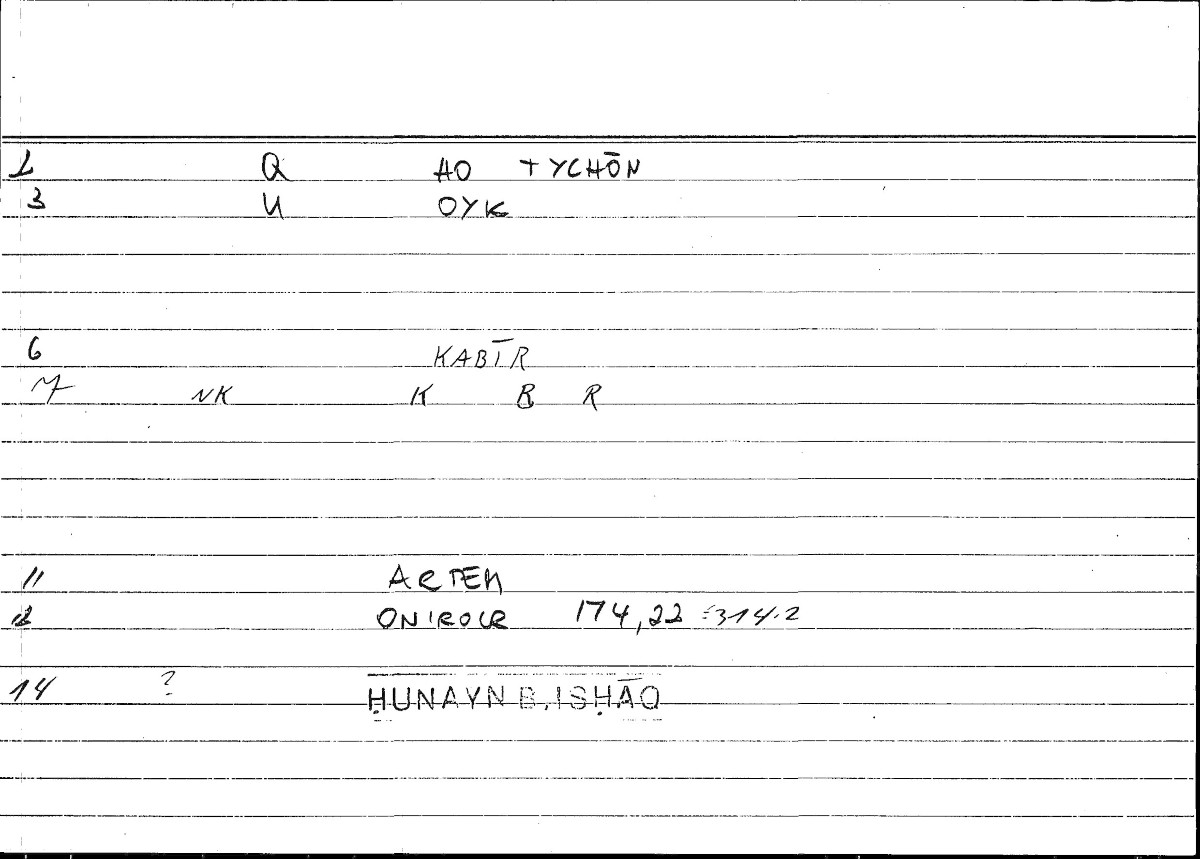 1 Q HO TYCHŌN
3 U OYK
6 KABĪR
7 NK K B R
11 ARTEM
12 ONIROCR 174,22 = 314.2
14 ? ḤUNAYN B. ISḤĀQ